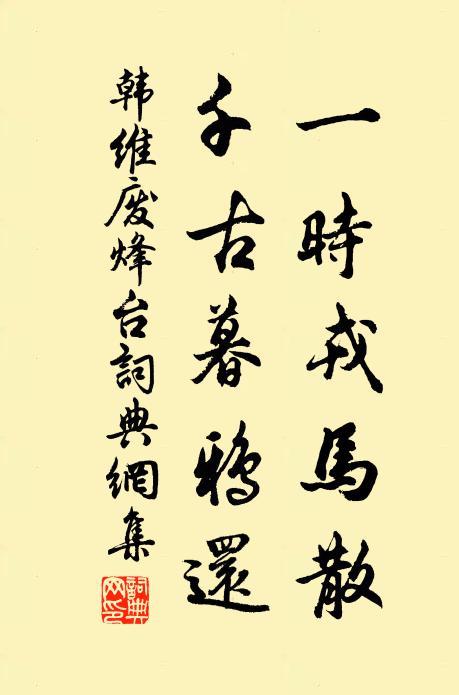 一時戎馬散
千古暮鴉還
韓維廢烽台詞典網集
詞典網印